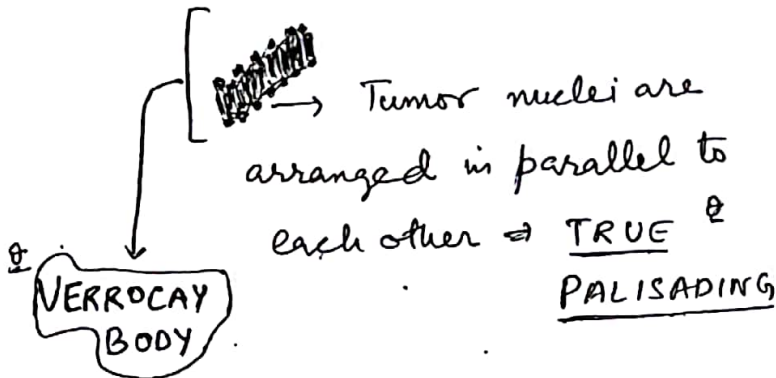 → Tumor nuclei are
arranged in parallel to
each other ⇒ TRUE Q
PALISADING
Q
VERROCAY
BODY